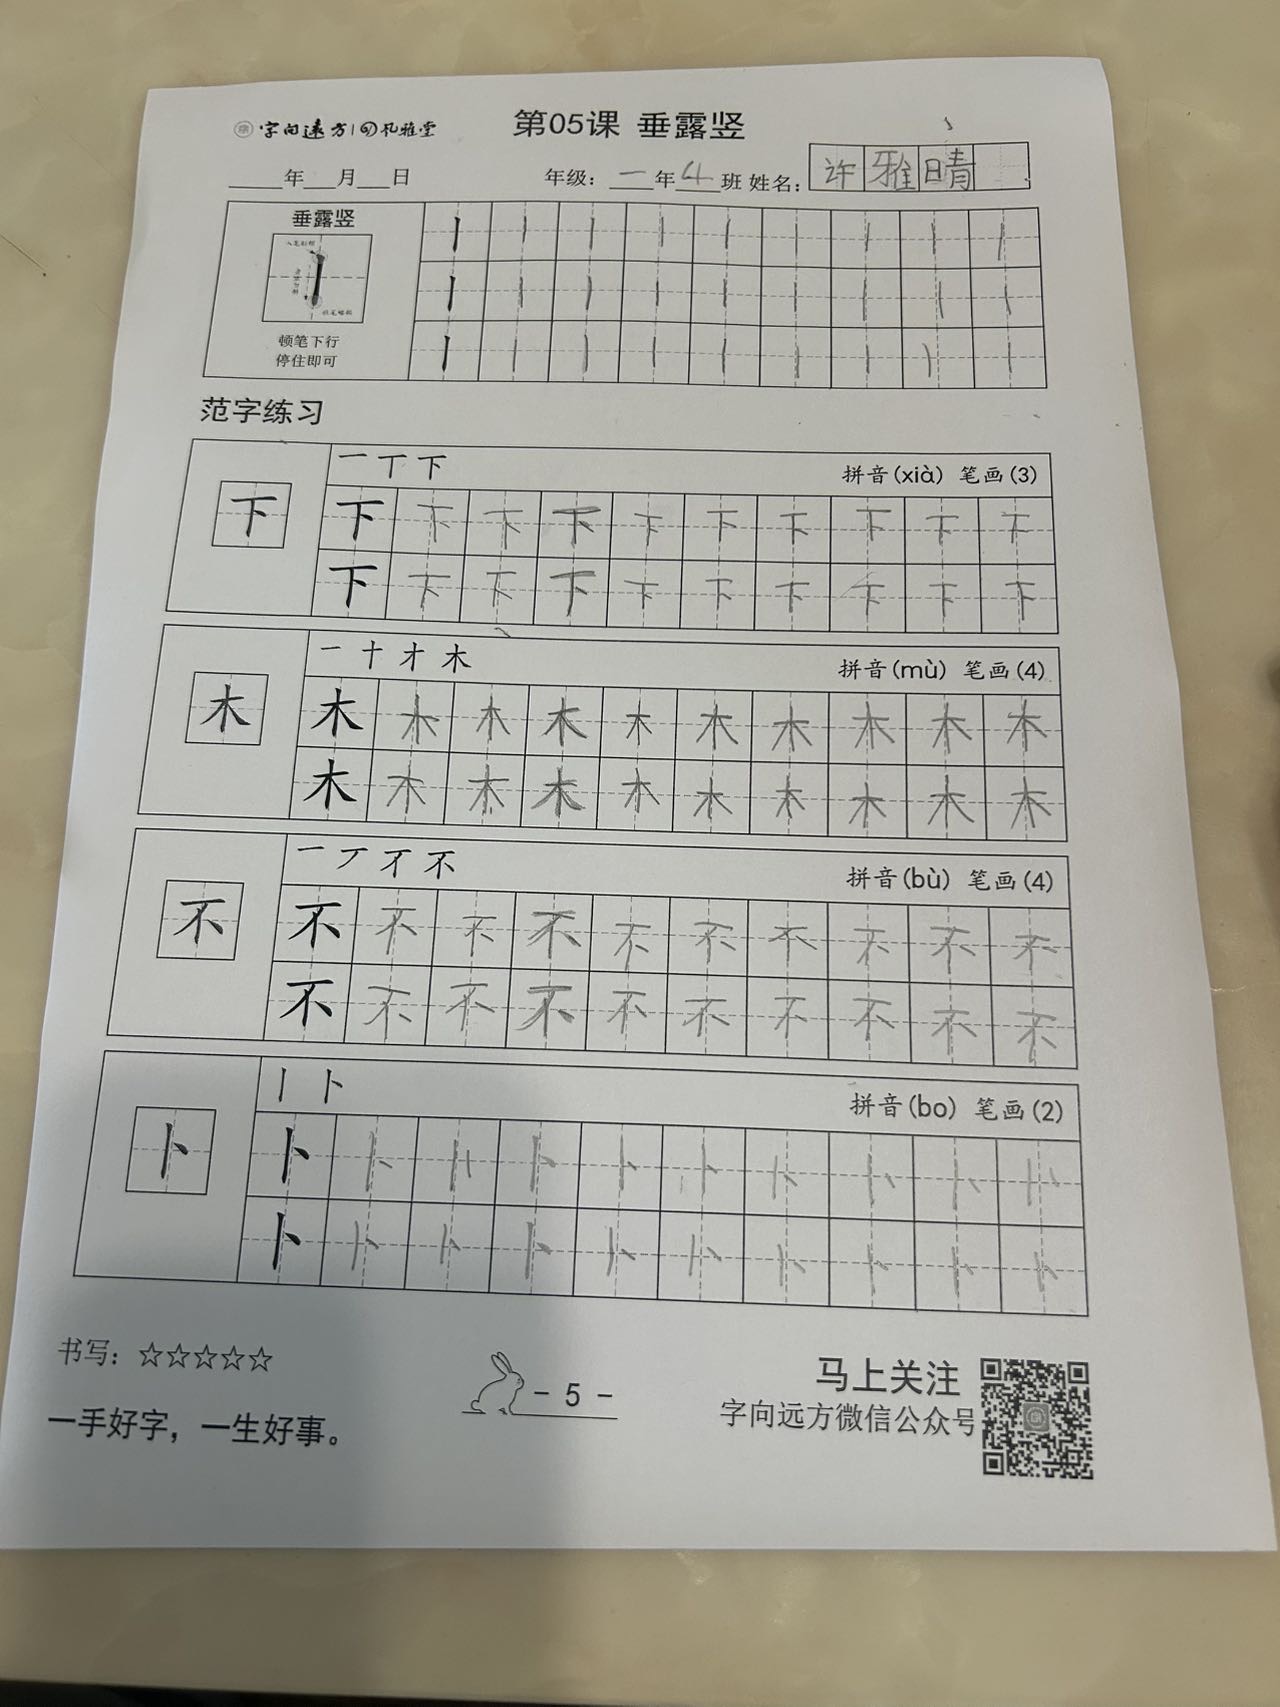 字向远方 礼雅堂
第05课 垂露竖
年 月 日 年级：一年4班 姓名：许雅晴
垂露竖
顿笔下行
停住即可
范字练习
一 丅 下 拼音(xià) 笔画(3)
下 下 下 下 下 下 下 下 下 下 下
下 下 下 下 下 下 下 下 下 下
一 十 才 木 拼音(mù) 笔画(4)
木 木 木 木 木 木 木 木 木 木 木
木 木 木 木 木 木 木 木 木 木
一 丆 不 拼音(bù) 笔画(4)
不 不 不 不 不 不 不 不 不 不 不
不 不 不 不 不 不 不 不 不 不
丨 卜 拼音(bo) 笔画(2)
卜 卜 卜 卜 卜 卜 卜 卜 卜 卜 卜
卜 卜 卜 卜 卜 卜 卜 卜 卜 卜
书写：☆☆☆☆☆
一手好字，一生好事。
- 5 -
马上关注
字向远方微信公众号